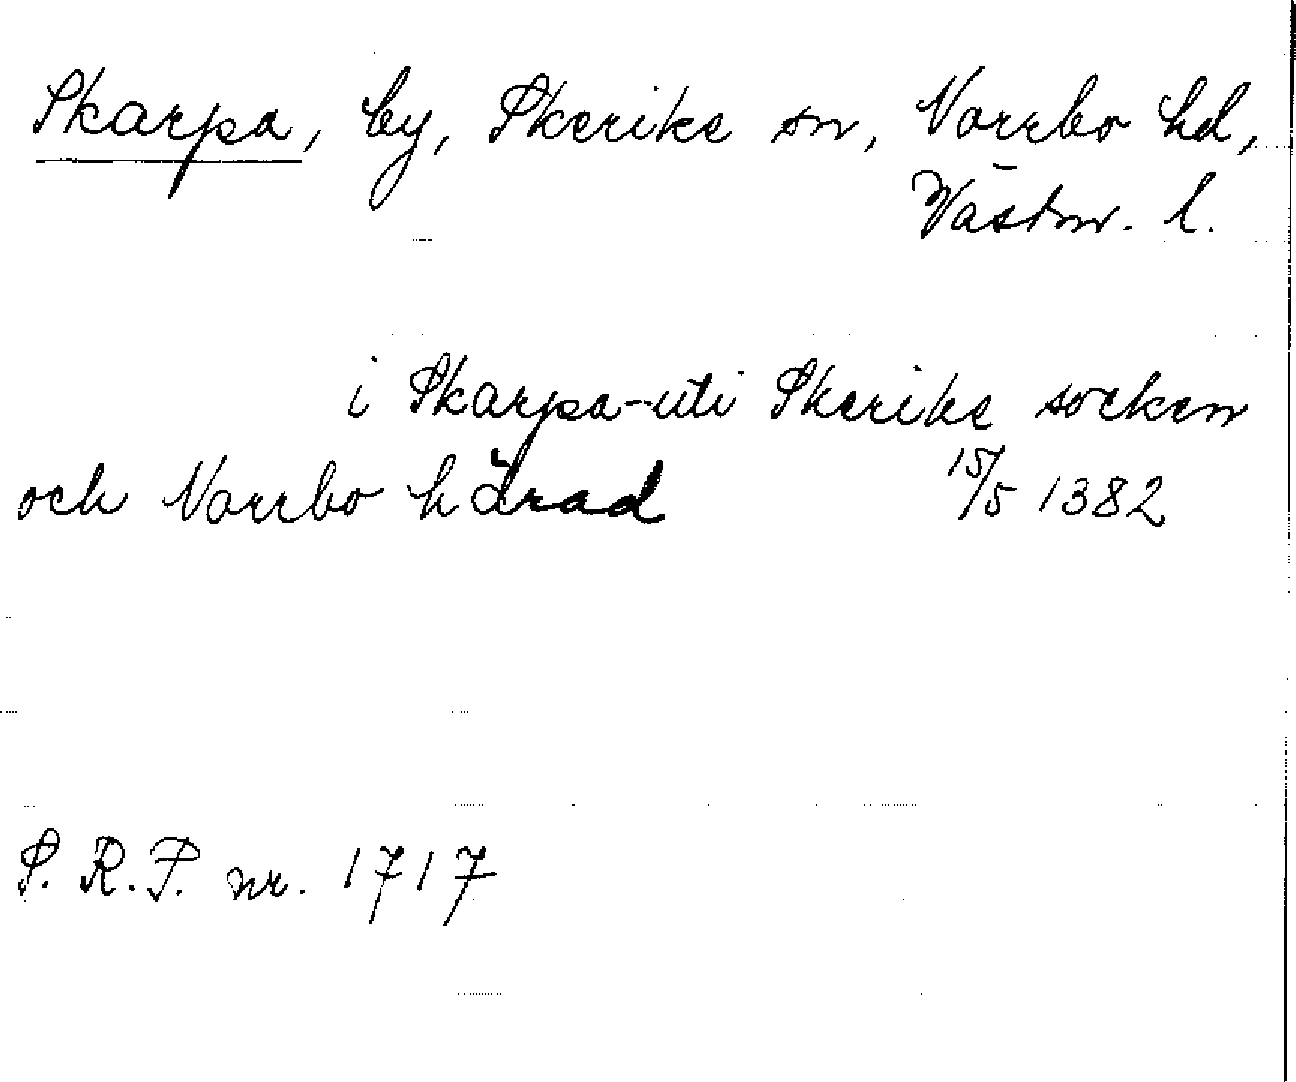 Skarpa, by, Skerike sn, Norrbo hd,
Västm. l.
i Skarpa-uti Skerike socken
och Norrbo härad 15/5 1382
S. R. P. nr. 1717